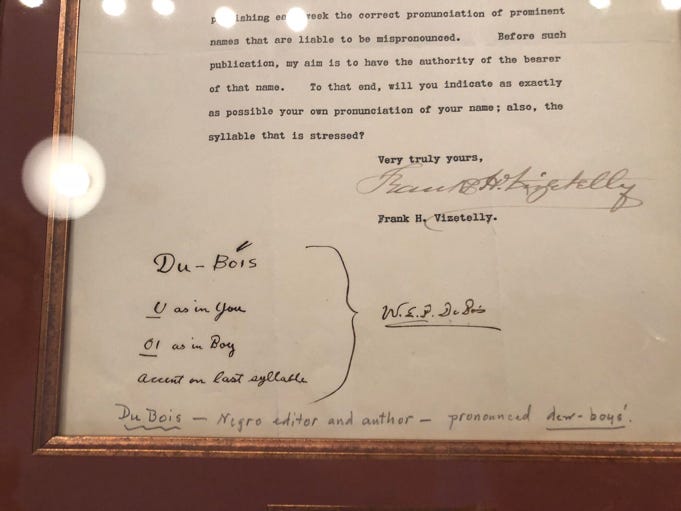 publishing each week the correct pronunciation of prominent
names that are liable to be mispronounced. Before such
publication, my aim is to have the authority of the bearer
of that name. To that end, will you indicate as exactly
as possible your own pronunciation of your name; also, the
syllable that is stressed?
Very truly yours,
Frank H. Vizetelly
Frank H. Vizetelly.
Du-Bóis
U as in You
OI as in Boy
accent on last syllable
W.E.B. DuBois
Du Bois — Negro editor and author — pronounced dew-boys'.